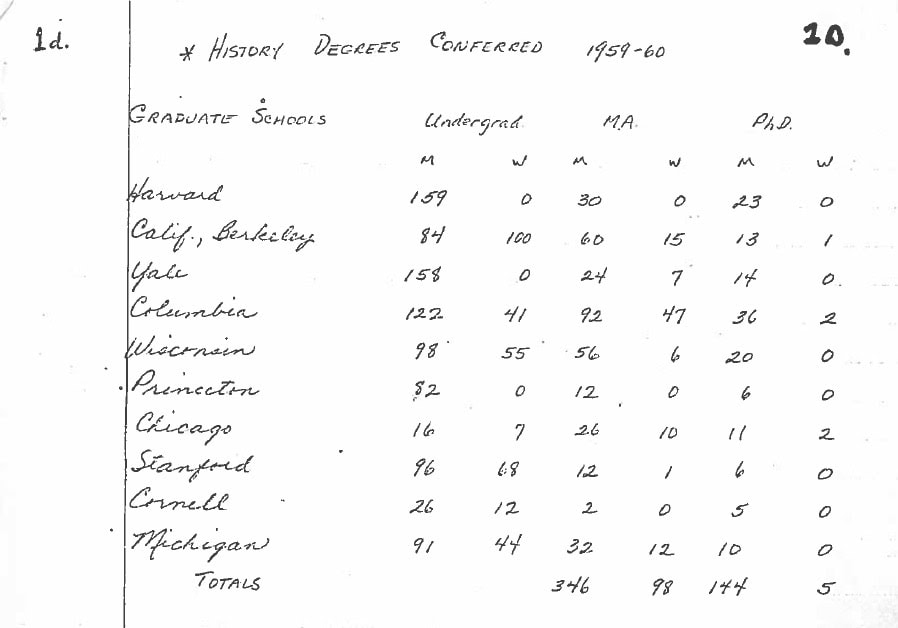 1d.
10.
* HISTORY DEGREES CONFERRED 1959-60
GRADUATE SCHOOLS Undergrad. M.A. Ph.D.
M W M W M W
Harvard 159 0 30 0 23 0
Calif., Berkeley 84 100 60 15 13 1
Yale 158 0 24 7 14 0.
Columbia 122 41 92 47 36 2
Wisconsin 98 55 56 6 20 0
Princeton 82 0 12 0 6 0
Chicago 16 7 26 10 11 2
Stanford 96 68 12 1 6 0
Cornell 26 12 2 0 5 0
Michigan 91 44 32 12 10 0
TOTALS 346 98 144 5